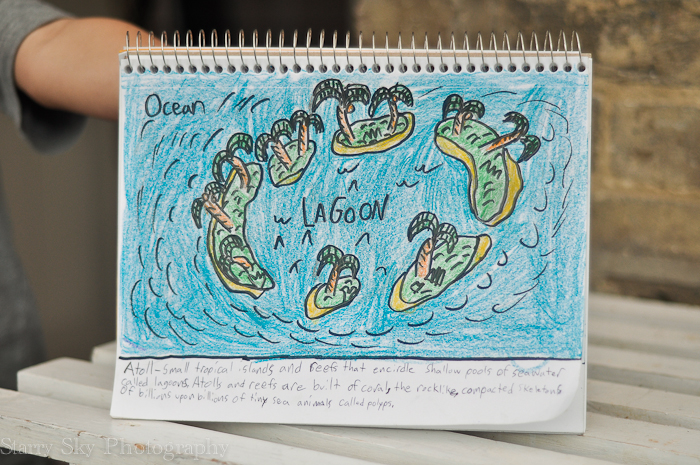 Ocean
LAGOON
Atoll-Small tropical islands and reefs that encirdle shallow pools of seawater
called lagoons. Atolls and reefs are built of coral, the rocklike, compacted skeletons
of billions upon billions of tiny sea animals called polyps.
Starry Sky Photography